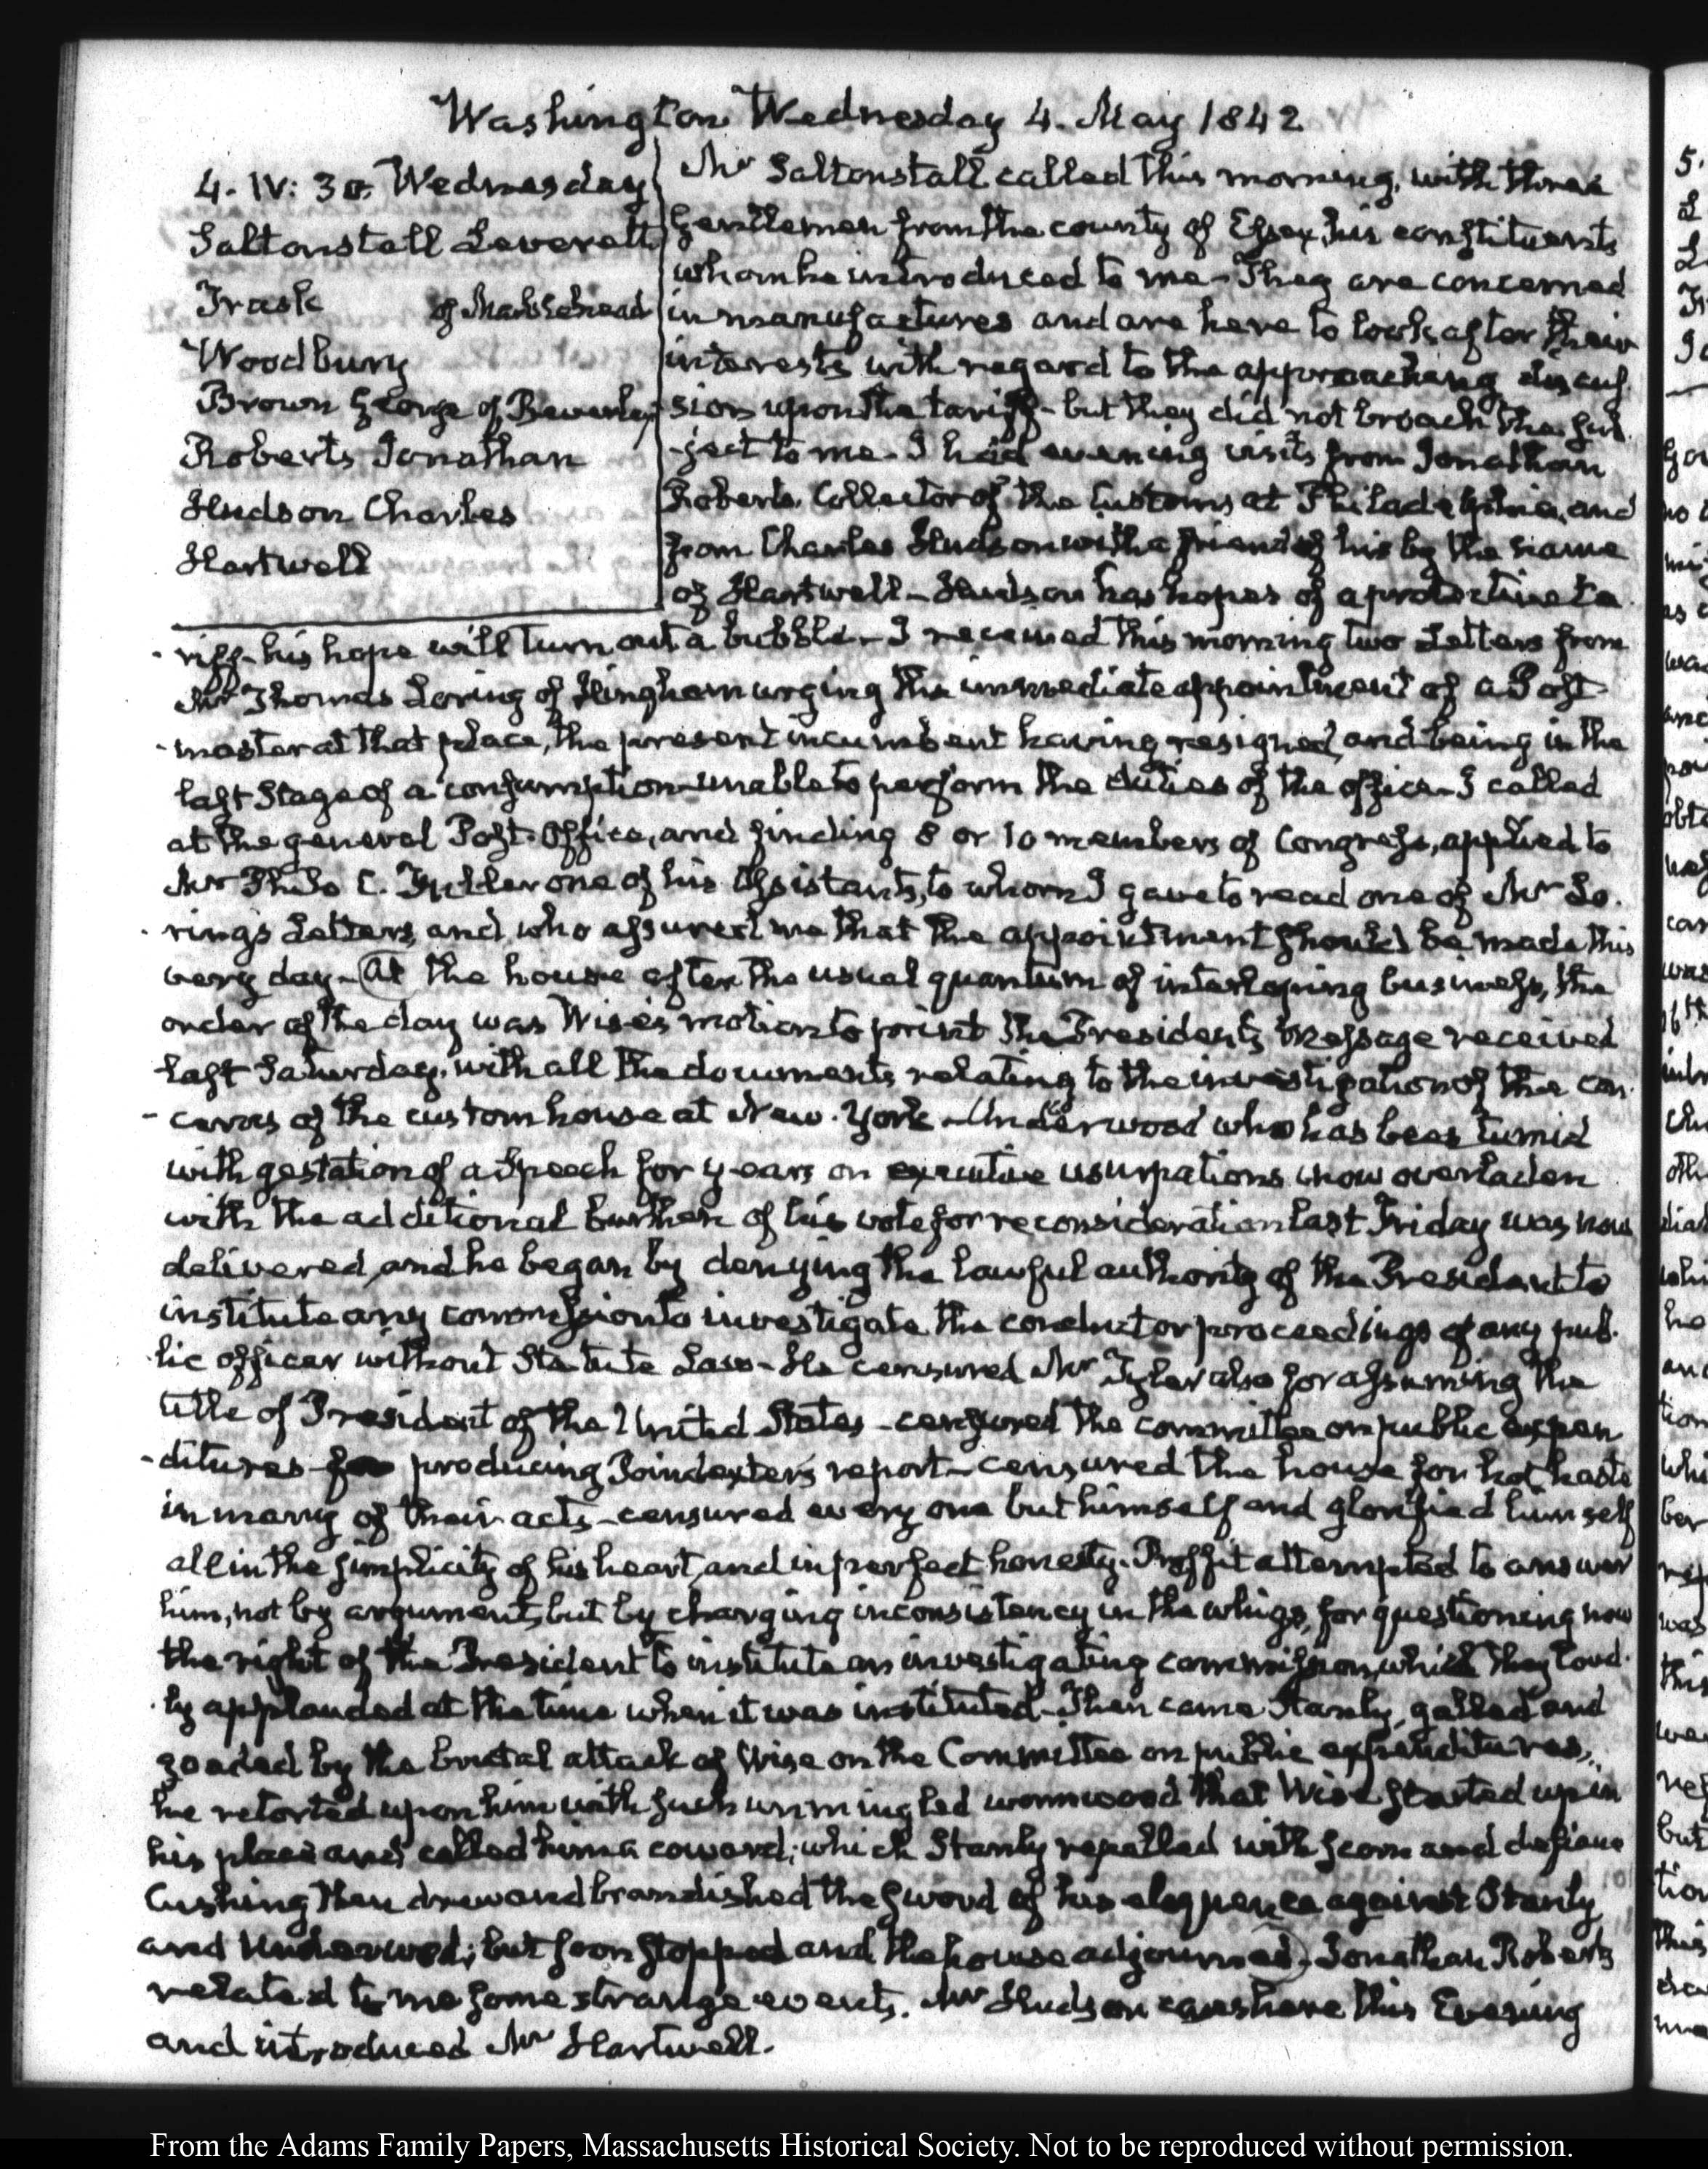 Washington Wednesday 4. May 1842
4. IV: 30. Wednesday
Saltonstall Leverett
Trask of Marblehead
Woodbury
Brown George of Beverley
Roberts Jonathan
Hudson Charles
Hartwell
Mr Saltonstall called this morning, with three
Gentlemen from the county of Essex, his constituents
whom he introduced to me - They are concerned
in manufactures and are here to look after their
interests with regard to the approaching discus
sion upon the tariff - but they did not broach the sub
-ject to me. I had evening visits from Jonathan
Roberts Collector of the Customs at Philadelphia, and
from Charles Hudson with a friend of his by the name
of Hartwell - Hudson has hopes of a protective ta
-riff - his hope will turn out a bubble - I received this morning two Letters from
Mr Thomas Loring of Hingham urging the immediate appointment of a Post-
-master at that place, the present incumbent having resigned, and being in the
last Stage of a consumption unable to perform the duties of the office - I called
at the general Post-Office, and finding 8 or 10 members of Congress, applied to
Mr Philo C. Fuller one of his Assistants, to whom I gave to read one of Mr Lo-
-ring's Letters, and who assured me that the appointment should be made this
very day - At the house after the usual quantum of interloping business, the
order of the day was Wise's motion to print the Presidents Message received
last Saturday, with all the documents relating to the investigation of the con-
-cerns of the custom house at New-York - Underwood who has been tumid
with gestation of a Speech for years on executive usurpations now overladen
with the additional burthen of his vote for reconsideration last Friday was now
delivered, and he began by denying the lawful authority of the President to
institute any commission to investigate the conduct or proceedings of any pub-
-lic officer without Statute Law - He censured Mr Tyler also for assuming the
title of President of the United States - censured the committee on public expen
-ditures for producing Poindexter's report - censured the house for hot haste
in many of their acts - censured every one but himself and glorified himself
all in the simplicity of his heart, and in perfect honesty. Proffit attempted to answer
him, not by argument, but by charging inconsistency in the whigs, for questioning now
the right of the President to institute an investigating commission, which they loud-
-ly applauded at the time when it was instituted - Then came Stanly, galled and
goaded by the brutal attack of Wise on the Committee on public expenditures,
he retorted upon him with such unmingled wormwood that Wise started up in
his place and called him a coward; which Stanly repelled with scorn and defiance
Cushing then drew and brandished the sword of his eloquence against Stanly
and Underwood; but soon stopped and the house adjourned. Jonathan Roberts
related to me some strange events. Mr Hudson was here this Evening
and introduced Mr Hartwell.
From the Adams Family Papers, Massachusetts Historical Society. Not to be reproduced without permission.